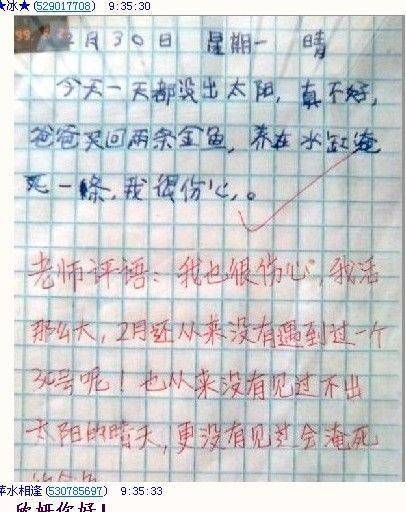 ★冰★(529017708) 9:35:30
2月30日 星期一 晴
今天一天都没出太阳,真不好,
爸爸买回两条金鱼,养在水缸淹
死一條,我很伤心。
老师评语:我也很伤心,我活
那么大,2月还从来没有遇到过一个
30号呢!也从来没有见过不出
太阳的晴天,更没有见过会淹死
萍水相逢(530785697) 9:35:33
欣妍你好!